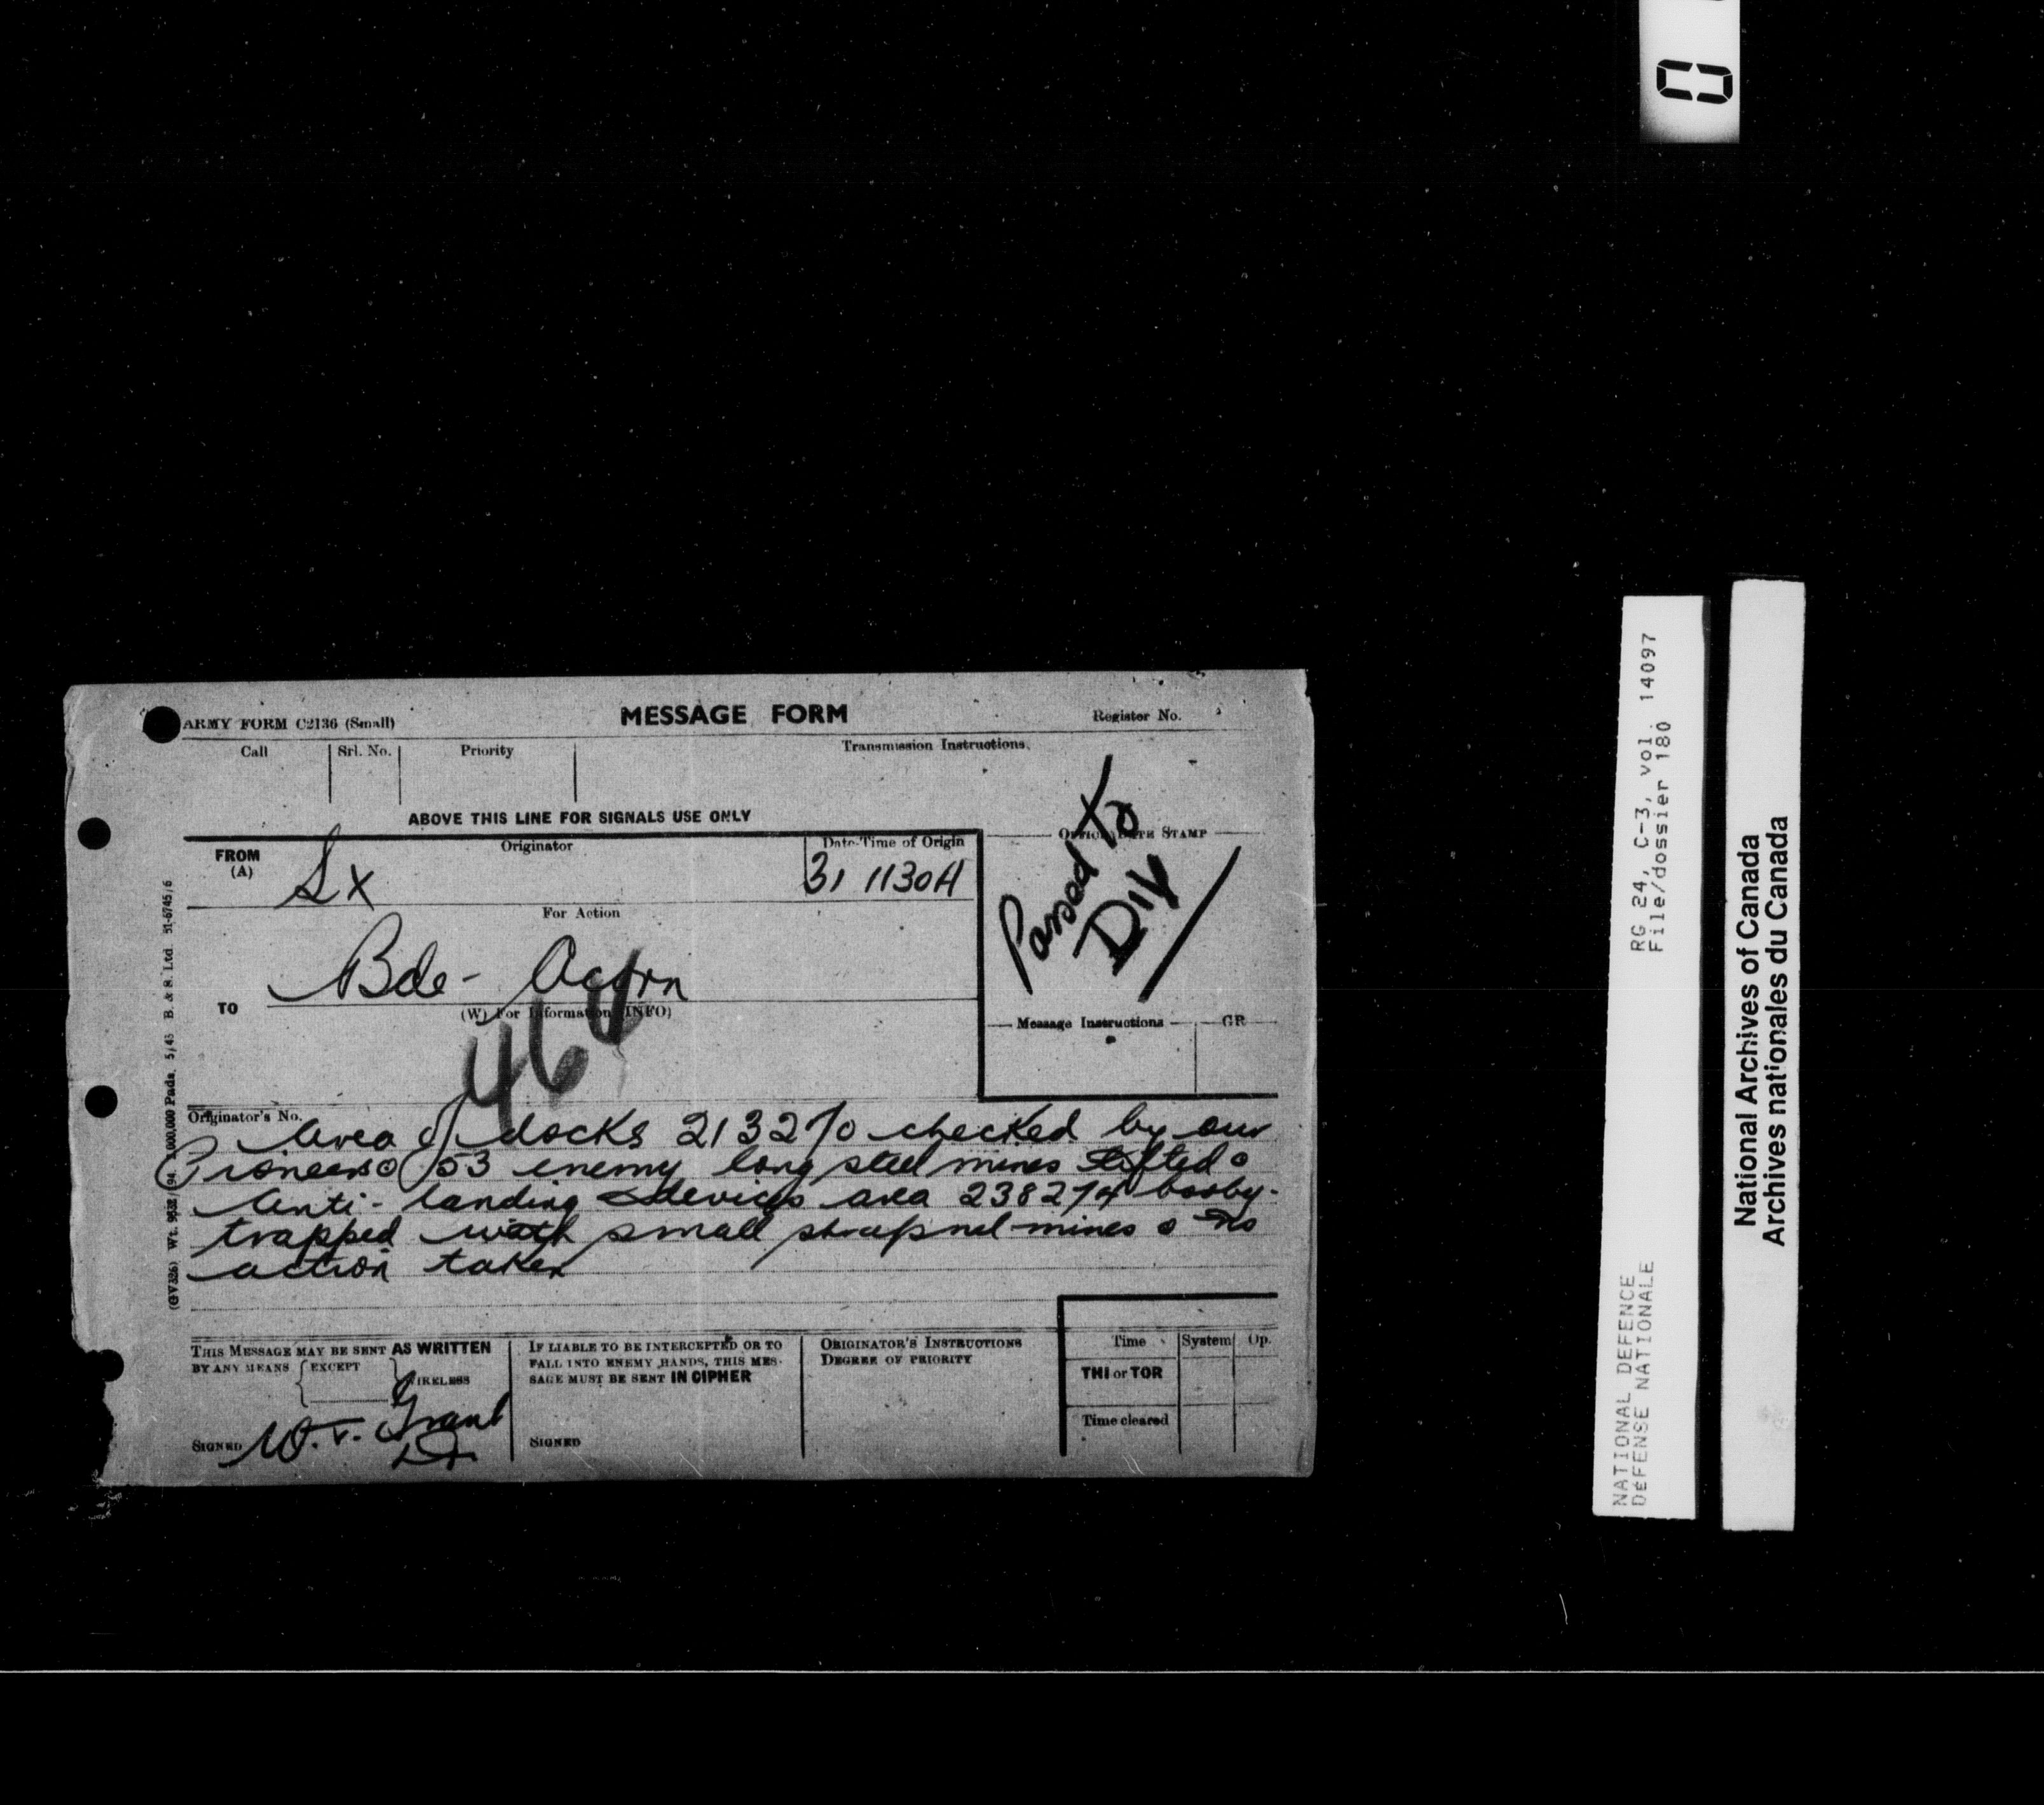 ARMY FORM C2136 (Small)
MESSAGE FORM
Register No.
Call
Srl. No.
Priority
Transmission Instructions.
ABOVE THIS LINE FOR SIGNALS USE ONLY
FROM
(A)
Originator
Date-Time of Origin
31 1130A
For Action
Bde - Acorn
TO
(W) For Information (INFO)
46
OFFICE DATE STAMP
Passed to
Div
Message Instructions
GR
Originator's No.
Area of docks 213270 checked by our
Pioneers o 53 enemy long steel mines lifted o
Anti-landing devices area 238274 booby-
trapped with small shrapnel mines o No
action taken
THIS MESSAGE MAY BE SENT AS WRITTEN
BY ANY MEANS
EXCEPT
WIRELESS
SIGNED W.T. Grant
Lt
IF LIABLE TO BE INTERCEPTED OR TO
FALL INTO ENEMY HANDS, THIS MES-
SAGE MUST BE SENT IN CIPHER
SIGNED
ORIGINATOR'S INSTRUCTIONS
DEGREE OF PRIORITY
Time
System
Op.
THI or TOR
Time cleared
B. & S. Ltd. 51-6745/6
RG 24, C-3, vol. 14097
File/dossier 180
NATIONAL DEFENCE
DÉFENSE NATIONALE
National Archives of Canada
Archives nationales du Canada